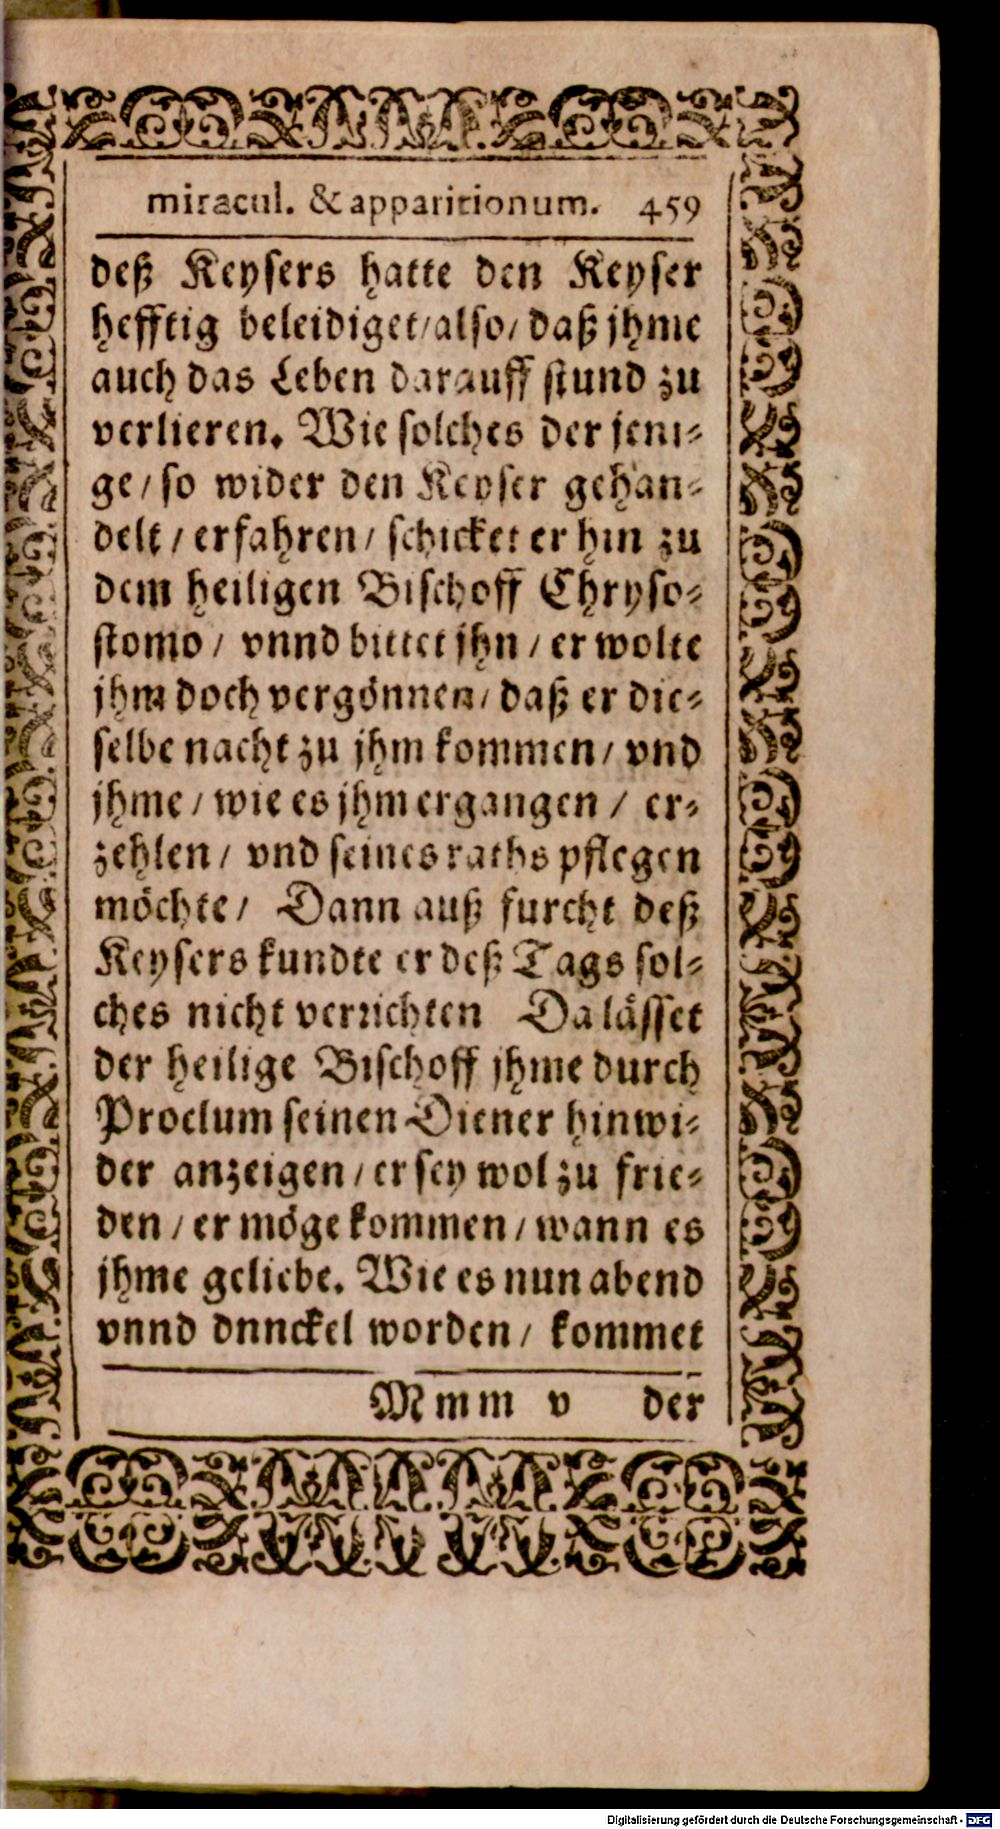 miracul. & apparitionum. 459
deß Keysers hatte den Keyser
hefftig beleidiget/also/ daß jhme
auch das Leben darauff stund zu
verlieren. Wie solches der jeni⸗
ge/ so wider den Keyser gehan⸗
delt/ erfahren/ schicket er hin zu
dem heiligen Bischoff Chryso⸗
stomo/ vnnd bittet jhn/ er wolte
jhm doch vergönnen/ daß er die⸗
selbe nacht zu jhm kommen/ vnd
jhme/ wie es jhm ergangen/ er⸗
zehlen/ vnd seines raths pflegen
möchte/ Dann auß furcht deß
Keysers kundte er deß Tags sol⸗
ches nicht verrichten Da lässet
der heilige Bischoff jhme durch
Proclum seinen Diener hinwi⸗
der anzeigen/ er sey wol zu frie⸗
den/ er möge kommen/ wann es
jhme geliebe. Wie es nun abend
vnnd dnnckel worden/ kommet
Mmm v der
Digitalisierung gefördert durch die Deutsche Forschungsgemeinschaft - DFG